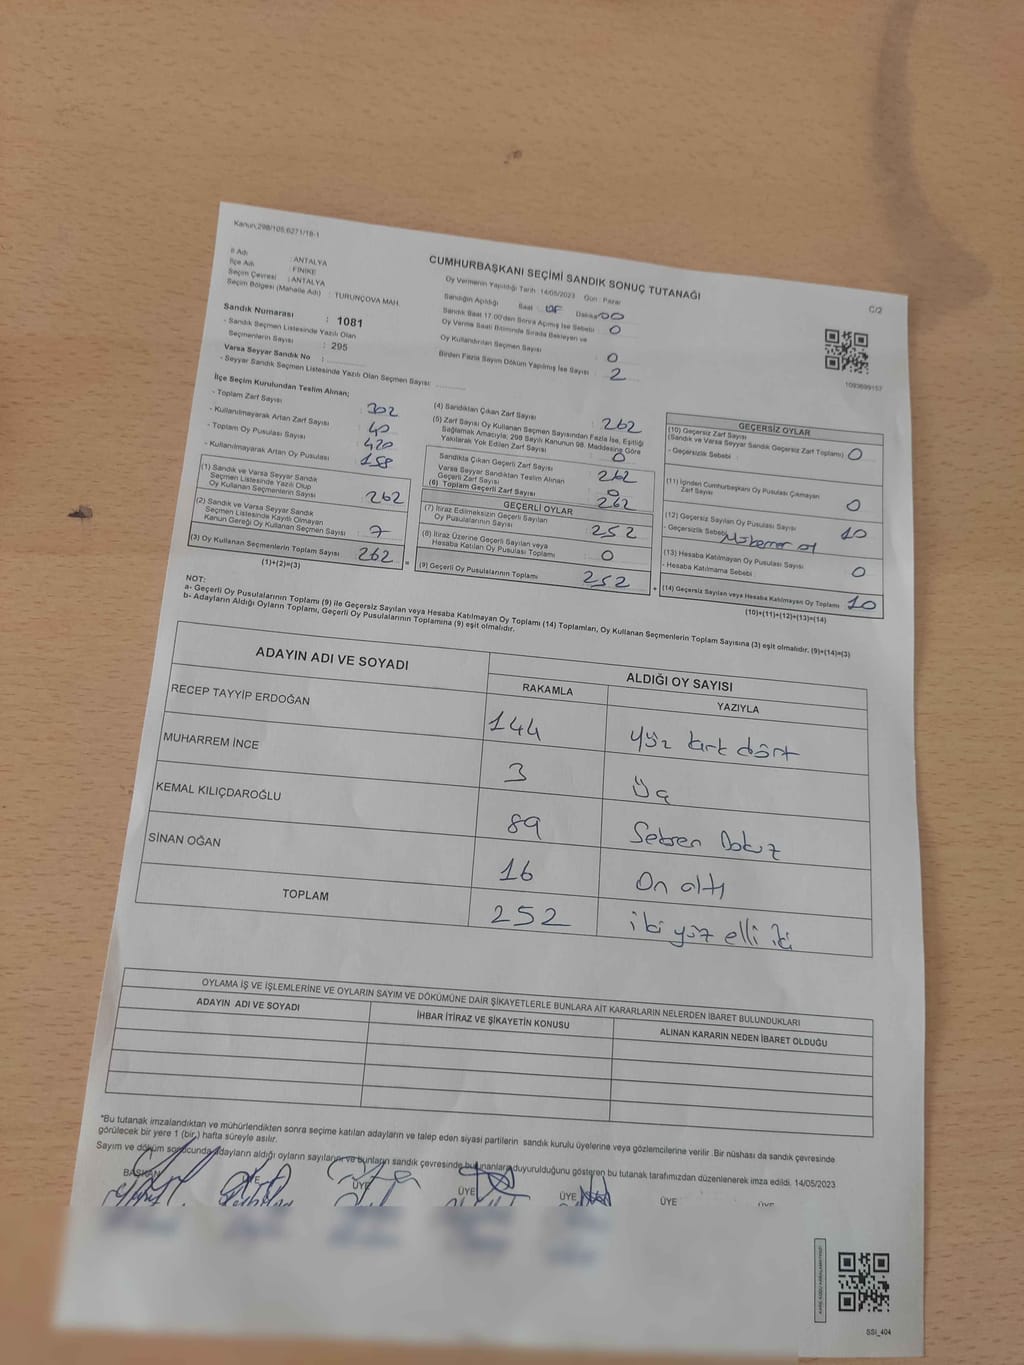 Kanun;298/105,6271/18-1
CUMHURBAŞKANI SEÇİMİ SANDIK SONUÇ TUTANAĞI
C/2
İl Adı : ANTALYA
İlçe Adı : FİNİKE
Seçim Çevresi : ANTALYA
Seçim Bölgesi (Mahalle Adı) : TURUNÇOVA MAH.
Oy Vermenin Yapıldığı Tarih : 14/05/2023 Gün : Pazar
Sandığın Açıldığı Saat : Dakika 00
Sandık Saat 17.00'den Sonra Açılmış İse Sebebi : 0
Oy Verme Saati Bitiminde Sırada Bekleyen ve
Oy Kullandırılan Seçmen Sayısı : 0
Birden Fazla Sayım Döküm Yapılmış İse Sayısı : 2
1093699157
Sandık Numarası : 1081
- Sandık Seçmen Listesinde Yazılı Olan
Seçmenlerin Sayısı : 295
Varsa Seyyar Sandık No :
- Seyyar Sandık Seçmen Listesinde Yazılı Olan Seçmen Sayısı:
İlçe Seçim Kurulundan Teslim Alınan;
- Toplam Zarf Sayısı : 302
- Kullanılmayarak Artan Zarf Sayısı : 40
- Toplam Oy Pusulası Sayısı : 420
- Kullanılmayarak Artan Oy Pusulası : 158
(1) Sandık ve Varsa Seyyar Sandık
Seçmen Listesinde Yazılı Olup
Oy Kullanan Seçmenlerin Sayısı : 262
(2) Sandık ve Varsa Seyyar Sandık
Seçmen Listesinde Kayıtlı Olmayan
Kanun Gereği Oy Kullanan Seçmen Sayısı : 7
(3) Oy Kullanan Seçmenlerin Toplam Sayısı : 262
(1)+(2)=(3)
(4) Sandıktan Çıkan Zarf Sayısı : 262
(5) Zarf Sayısı Oy Kullanan Seçmen Sayısından Fazla İse, Eşitliği
Sağlamak Amacıyla, 298 Sayılı Kanunun 98. Maddesine Göre
Yakılarak Yok Edilen Zarf Sayısı : 0
Sandıkta Çıkan Geçerli Zarf Sayısı : 262
Varsa Seyyar Sandıktan Teslim Alınan
Geçerli Zarf Sayısı : 0
(6) Toplam Geçerli Zarf Sayısı : 262
GEÇERLİ OYLAR
(7) İtiraz Edilmeksizin Geçerli Sayılan
Oy Pusulalarının Sayısı : 252
(8) İtiraz Üzerine Geçerli Sayılan veya
Hesaba Katılan Oy Pusulası Toplamı : 0
(9) Geçerli Oy Pusulalarının Toplamı : 252
GEÇERSİZ OYLAR
(10) Geçersiz Zarf Sayısı
(Sandık ve Varsa Seyyar Sandık Geçersiz Zarf Toplamı) : 0
- Geçersizlik Sebebi :
(11) İçinden Cumhurbaşkanı Oy Pusulası Çıkmayan
Zarf Sayısı : 0
(12) Geçersiz Sayılan Oy Pusulası Sayısı : 10
- Geçersizlik Sebebi
(13) Hesaba Katılmayan Oy Pusulası Sayısı : 0
- Hesaba Katılmama Sebebi
(14) Geçersiz Sayılan veya Hesaba Katılmayan Oy Toplamı : 10
(10)+(11)+(12)+(13)=(14)
NOT:
a- Geçerli Oy Pusulalarının Toplamı (9) ile Geçersiz Sayılan veya Hesaba Katılmayan Oy Toplamı (14) Toplamları, Oy Kullanan Seçmenlerin Toplam Sayısına (3) eşit olmalıdır. (9)+(14)=(3)
b- Adayların Aldığı Oyların Toplamı, Geçerli Oy Pusulalarının Toplamına (9) eşit olmalıdır.
ADAYIN ADI VE SOYADI
ALDIĞI OY SAYISI
RAKAMLA
YAZIYLA
RECEP TAYYİP ERDOĞAN 144 yüz kırk dört
MUHARREM İNCE 3 Üç
KEMAL KILIÇDAROĞLU 89 Seksen Dokuz
SİNAN OĞAN 16 On altı
TOPLAM 252 iki yüz elli iki
OYLAMA İŞ VE İŞLEMLERİNE VE OYLARIN SAYIM VE DÖKÜMÜNE DAİR ŞİKAYETLERLE BUNLARA AİT KARARLARIN NELERDEN İBARET BULUNDUKLARI
ADAYIN ADI VE SOYADI
İHBAR İTİRAZ VE ŞİKAYETİN KONUSU
ALINAN KARARIN NEDEN İBARET OLDUĞU
*Bu tutanak imzalandıktan ve mühürlendikten sonra seçime katılan adayların ve talep eden siyasi partilerin sandık kurulu üyelerine veya gözlemcilerine verilir. Bir nüshası da sandık çevresinde
görülecek bir yere 1 (bir) hafta süreyle asılır.
Sayım ve döküm sonucunda adayların aldığı oyların sayılarını ve bunların sandık çevresinde bulunanlara duyurulduğunu gösteren bu tutanak tarafımızdan düzenlenerek imza edildi. 14/05/2023
BAŞKAN ÜYE ÜYE ÜYE ÜYE ÜYE
SSİ_404